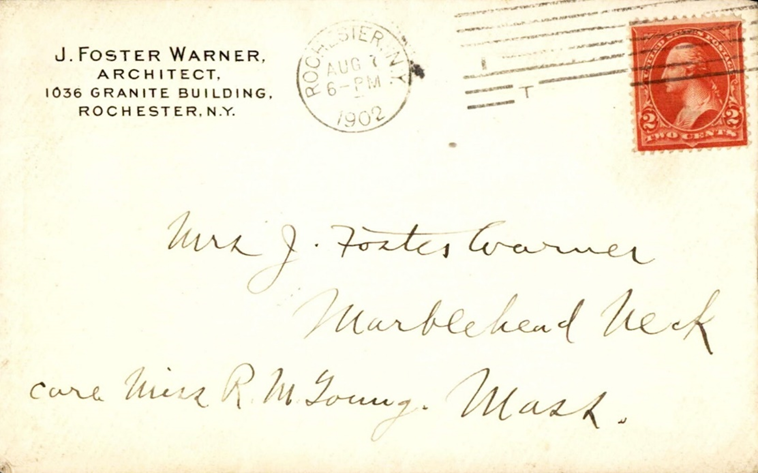 J. FOSTER WARNER,
ARCHITECT,
1036 GRANITE BUILDING,
ROCHESTER, N.Y.
ROCHESTER, N.Y.
AUG 7
6-PM
1902
T
UNITED STATES POSTAGE
2 2
TWO CENTS
Mrs J. Foster Warner
Marblehead Neck
care Miss R. M. Young. Mass.